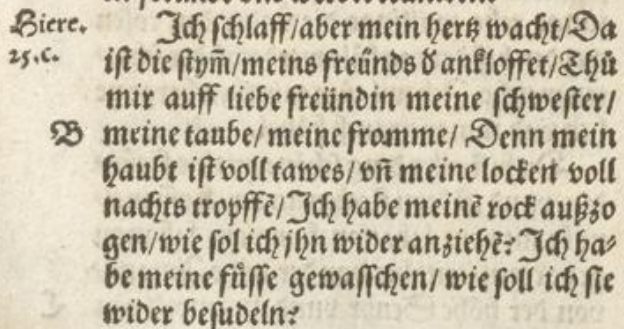 Hiere. Ich schlaff/aber mein hertz wacht/Da
25.c. ist die stym̃/meins freünds d̕ ankloffet/Thů
mir auff liebe freündin meine schwester/
B meine taube/meine fromme/ Denn mein
haubt ist voll tawes/vñ meine locken voll
nachts tropffẽ/Ich habe meinẽ rock außzo
gen/wie sol ich jhn wider anziehẽ? Ich ha⸗
be meine fůsse gewasschen/wie soll ich sie
wider besudeln?